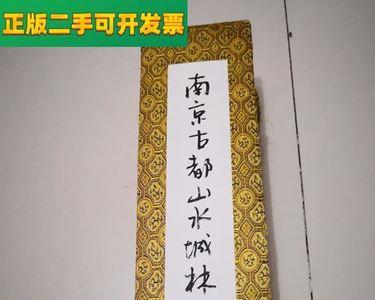 正版二手可开发票
南京古都山水城林